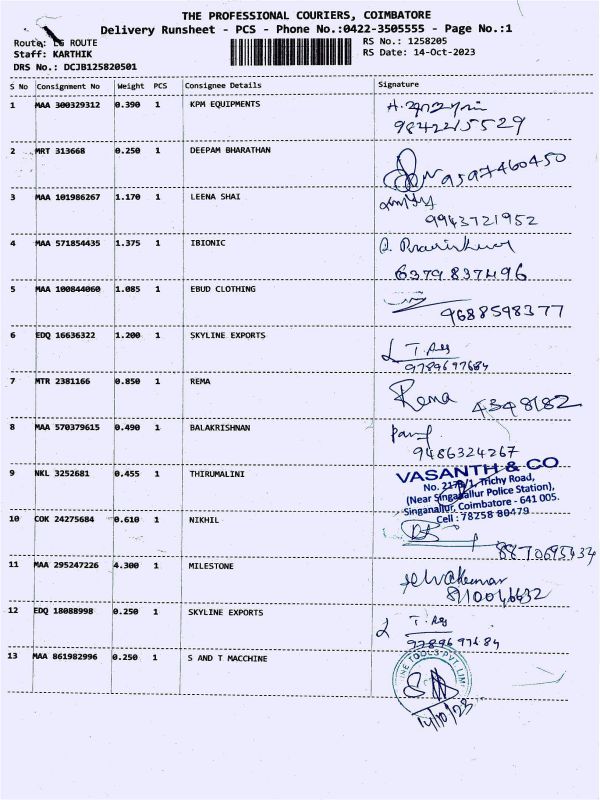 THE PROFESSIONAL COURIERS, COIMBATORE
Delivery Runsheet - PCS - Phone No.:0422-3505555 - Page No.:1
Route: LG ROUTE
RS No.: 1258205
Staff: KARTHIK
RS Date: 14-Oct-2023
DRS No.: DCJB125820501
S No Consignment No Weight PCS Consignee Details Signature
1 MAA 300329312 0.390 1 KPM EQUIPMENTS
9842215529
2 MRT 313668 0.250 1 DEEPAM BHARATHAN
9597460450
3 MAA 101986267 1.170 1 LEENA SHAI
9943721952
4 MAA 571854435 1.375 1 IBIONIC
6379837496
5 MAA 100844060 1.085 1 EBUD CLOTHING
9688598377
6 EDQ 16636322 1.200 1 SKYLINE EXPORTS
9789697684
7 MTR 2381166 0.850 1 REMA Rema 4348182
8 MAA 570379615 0.490 1 BALAKRISHNAN
9486324267
VASANTH & CO
9 NKL 3252681 0.455 1 THIRUMALINI
Trichy Road,
(Near Singanallur Police Station),
Singanallur, Coimbatore - 641 005.
Cell : 78258 80479
10 COK 24275684 0.610 1 NIKHIL
8870695434
11 MAA 295247226 4.300 1 MILESTONE
8110046632
12 EDQ 18088998 0.250 1 SKYLINE EXPORTS
9789697684
13 MAA 861982996 0.250 1 S AND T MACCHINE
TOOLS PVT LIM
14/10/23